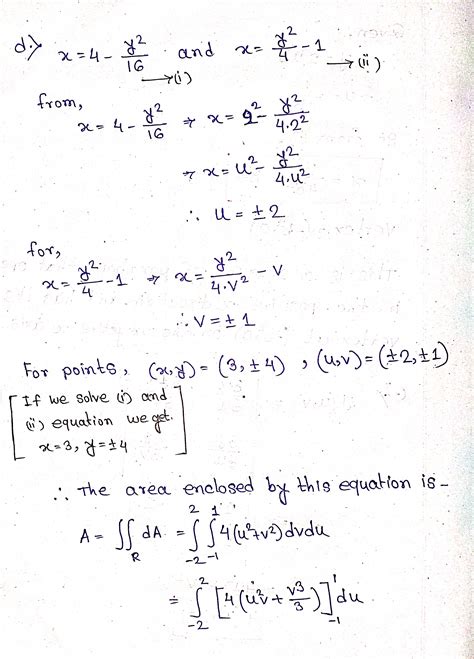 d.) x = 4 - y²/16 and x = y²/4 - 1
→(i) →(ii)
from,
x = 4 - y²/16 ⇒ x = 2² - y²/4·2²
⇒ x = u² - y²/4·u²
∴ u = ±2
for,
x = y²/4 - 1 ⇒ x = y²/4·v² - v
∴ v = ±1
For points, (x,y) = (3, ±4) , (u,v) = (±2, ±1)
[If we solve (i) and
(ii) equation we get.
x = 3, y = ±4]
∴ The area enclosed by this equation is -
A = ∬_R dA = ∫_{-2}^{2} ∫_{-1}^{1} 4(u²+v²) dv du
= ∫_{-2}^{2} [4(u²v + v³/3)]_{-1}^{1} du